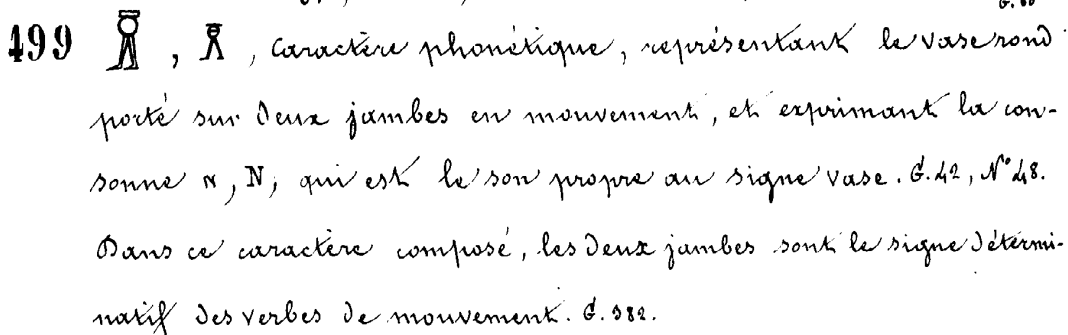 499 𓏎, 𓏎, caractère phonétique, représentant le vase rond
porté sur deux jambes en mouvement, et exprimant la con-
sonne ⲛ, N, qui est le son propre au signe vase. G. 42, N° 48.
Dans ce caractère composé, les deux jambes sont le signe détermi-
natif des verbes de mouvement. G. 382.